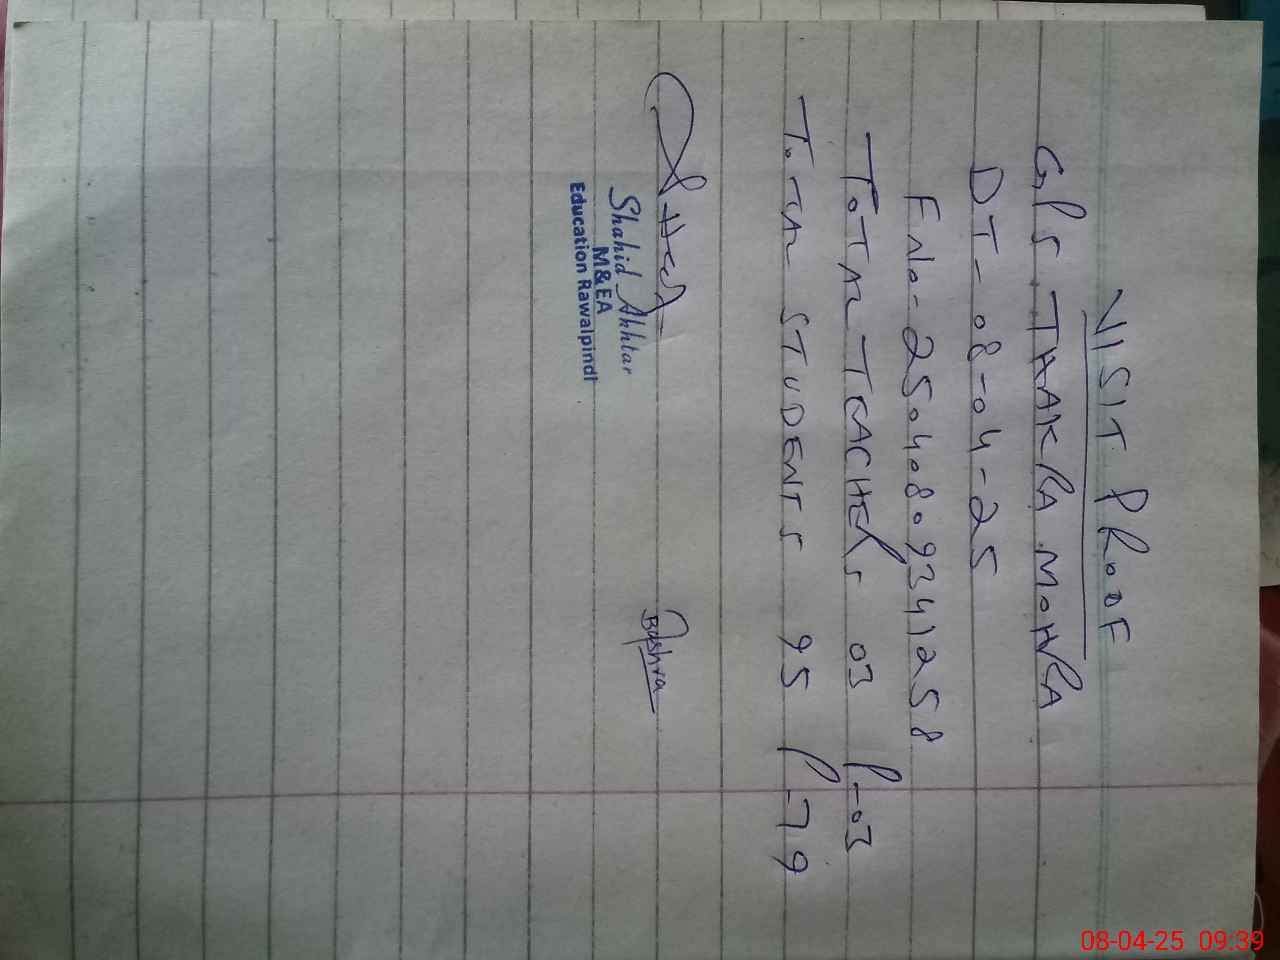 VISIT PROOF
GPS THAKRA MOHRA
DT-08-04-25
FNo-25040809341258
TOTAL TEACHERS 03 P-03
TOTAL STUDENTS 95 P-79
Bushra
Shahid Akhtar
M&EA
Education Rawalpindi
08-04-25 09:39